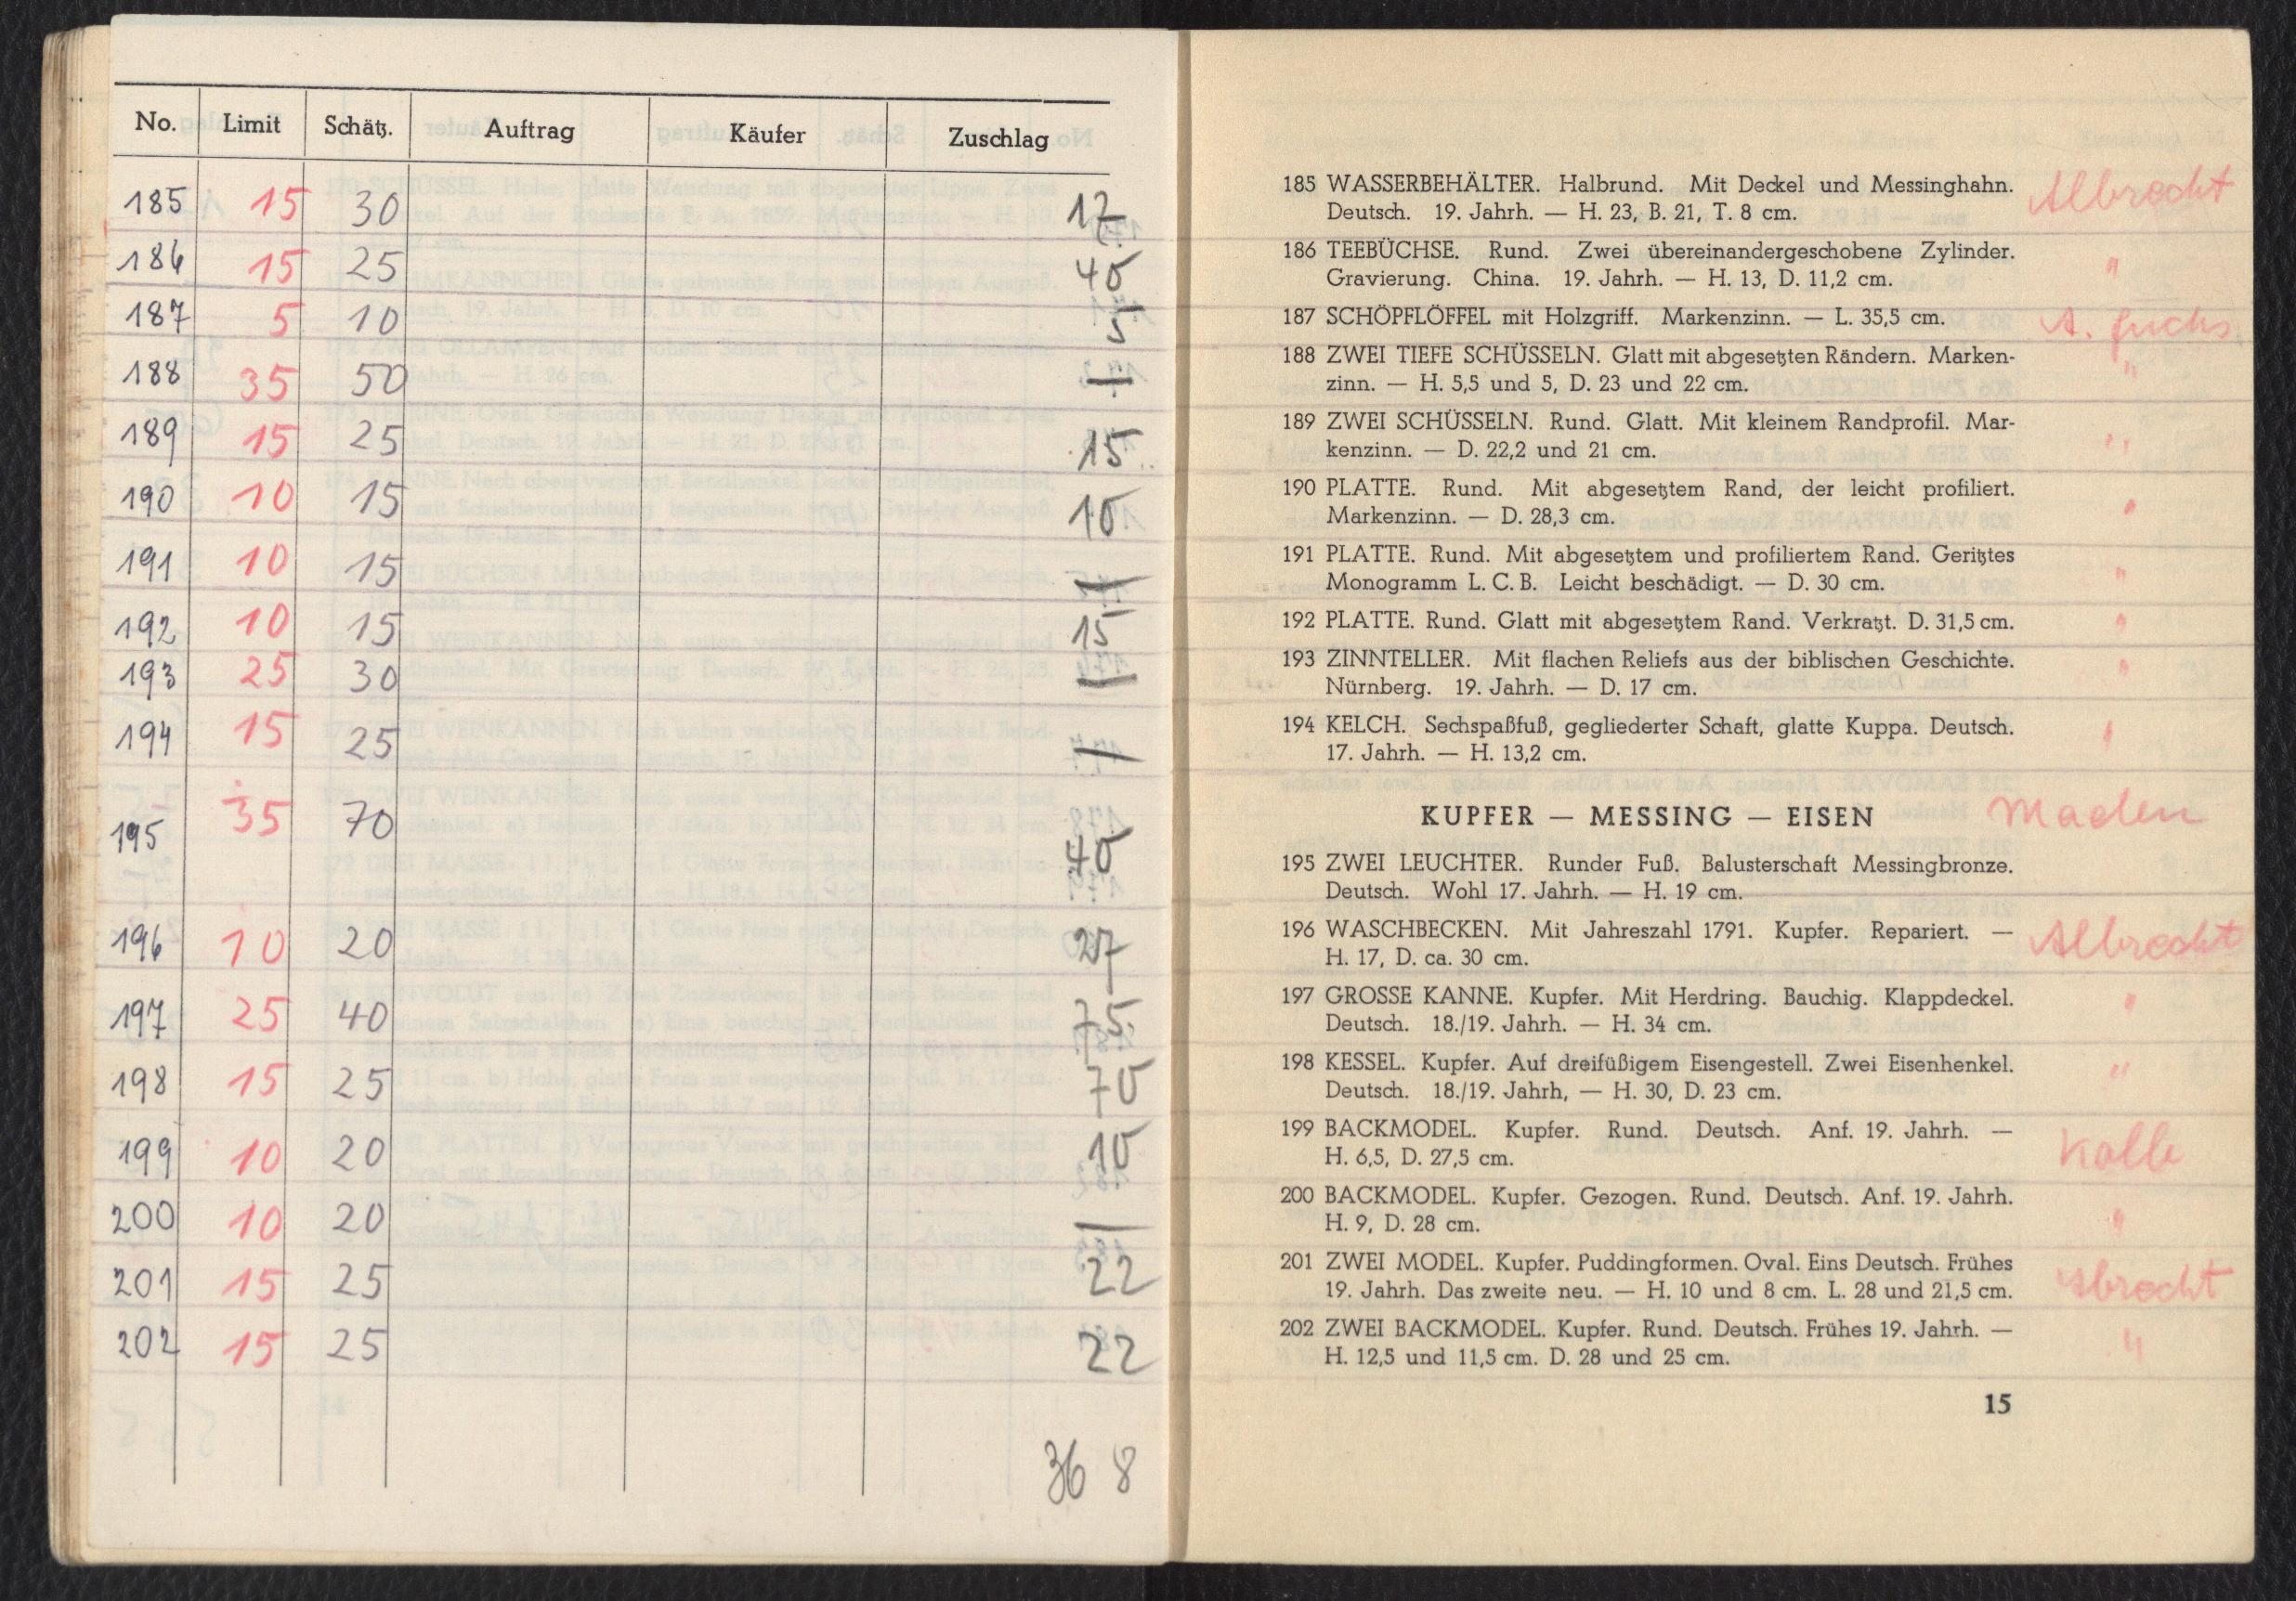 No. Limit Schätz. Auftrag Käufer Zuschlag
185 15 30 17
186 15 25 40
187 5 10 5
188 35 50 —
189 15 25 15
190 10 15 10
191 10 15 —
192 10 15 15
193 25 30 —
194 15 25 —
195 35 70 40
196 10 20 27
197 25 40 75
198 15 25 70
199 10 20 10
200 10 20 —
201 15 25 22
202 15 25 22
368
185 WASSERBEHÄLTER. Halbrund. Mit Deckel und Messinghahn. Albrecht
Deutsch. 19. Jahrh. — H. 23, B. 21, T. 8 cm.
186 TEEBÜCHSE. Rund. Zwei übereinandergeschobene Zylinder. "
Gravierung. China. 19. Jahrh. — H. 13, D. 11,2 cm.
187 SCHÖPFLÖFFEL mit Holzgriff. Markenzinn. — L. 35,5 cm. A. Fuchs
188 ZWEI TIEFE SCHÜSSELN. Glatt mit abgesetzten Rändern. Marken- "
zinn. — H. 5,5 und 5, D. 23 und 22 cm.
189 ZWEI SCHÜSSELN. Rund. Glatt. Mit kleinem Randprofil. Mar- "
kenzinn. — D. 22,2 und 21 cm.
190 PLATTE. Rund. Mit abgesetztem Rand, der leicht profiliert. "
Markenzinn. — D. 28,3 cm.
191 PLATTE. Rund. Mit abgesetztem und profiliertem Rand. Geritztes "
Monogramm L. C. B. Leicht beschädigt. — D. 30 cm.
192 PLATTE. Rund. Glatt mit abgesetztem Rand. Verkratzt. D. 31,5 cm. "
193 ZINNTELLER. Mit flachen Reliefs aus der biblischen Geschichte. "
Nürnberg. 19. Jahrh. — D. 17 cm.
194 KELCH. Sechspaßfuß, gegliederter Schaft, glatte Kuppa. Deutsch. "
17. Jahrh. — H. 13,2 cm.
KUPFER — MESSING — EISEN Maden
195 ZWEI LEUCHTER. Runder Fuß. Balusterschaft Messingbronze.
Deutsch. Wohl 17. Jahrh. — H. 19 cm.
196 WASCHBECKEN. Mit Jahreszahl 1791. Kupfer. Repariert. — Albrecht
H. 17, D. ca. 30 cm.
197 GROSSE KANNE. Kupfer. Mit Herdring. Bauchig. Klappdeckel. "
Deutsch. 18./19. Jahrh. — H. 34 cm.
198 KESSEL. Kupfer. Auf dreifüßigem Eisengestell. Zwei Eisenhenkel. "
Deutsch. 18./19. Jahrh, — H. 30, D. 23 cm.
199 BACKMODEL. Kupfer. Rund. Deutsch. Anf. 19. Jahrh. — Kolb
H. 6,5, D. 27,5 cm.
200 BACKMODEL. Kupfer. Gezogen. Rund. Deutsch. Anf. 19. Jahrh. "
H. 9, D. 28 cm.
201 ZWEI MODEL. Kupfer. Puddingformen. Oval. Eins Deutsch. Frühes
19. Jahrh. Das zweite neu. — H. 10 und 8 cm. L. 28 und 21,5 cm. Albrecht
202 ZWEI BACKMODEL. Kupfer. Rund. Deutsch. Frühes 19. Jahrh. — "
H. 12,5 und 11,5 cm. D. 28 und 25 cm.
15